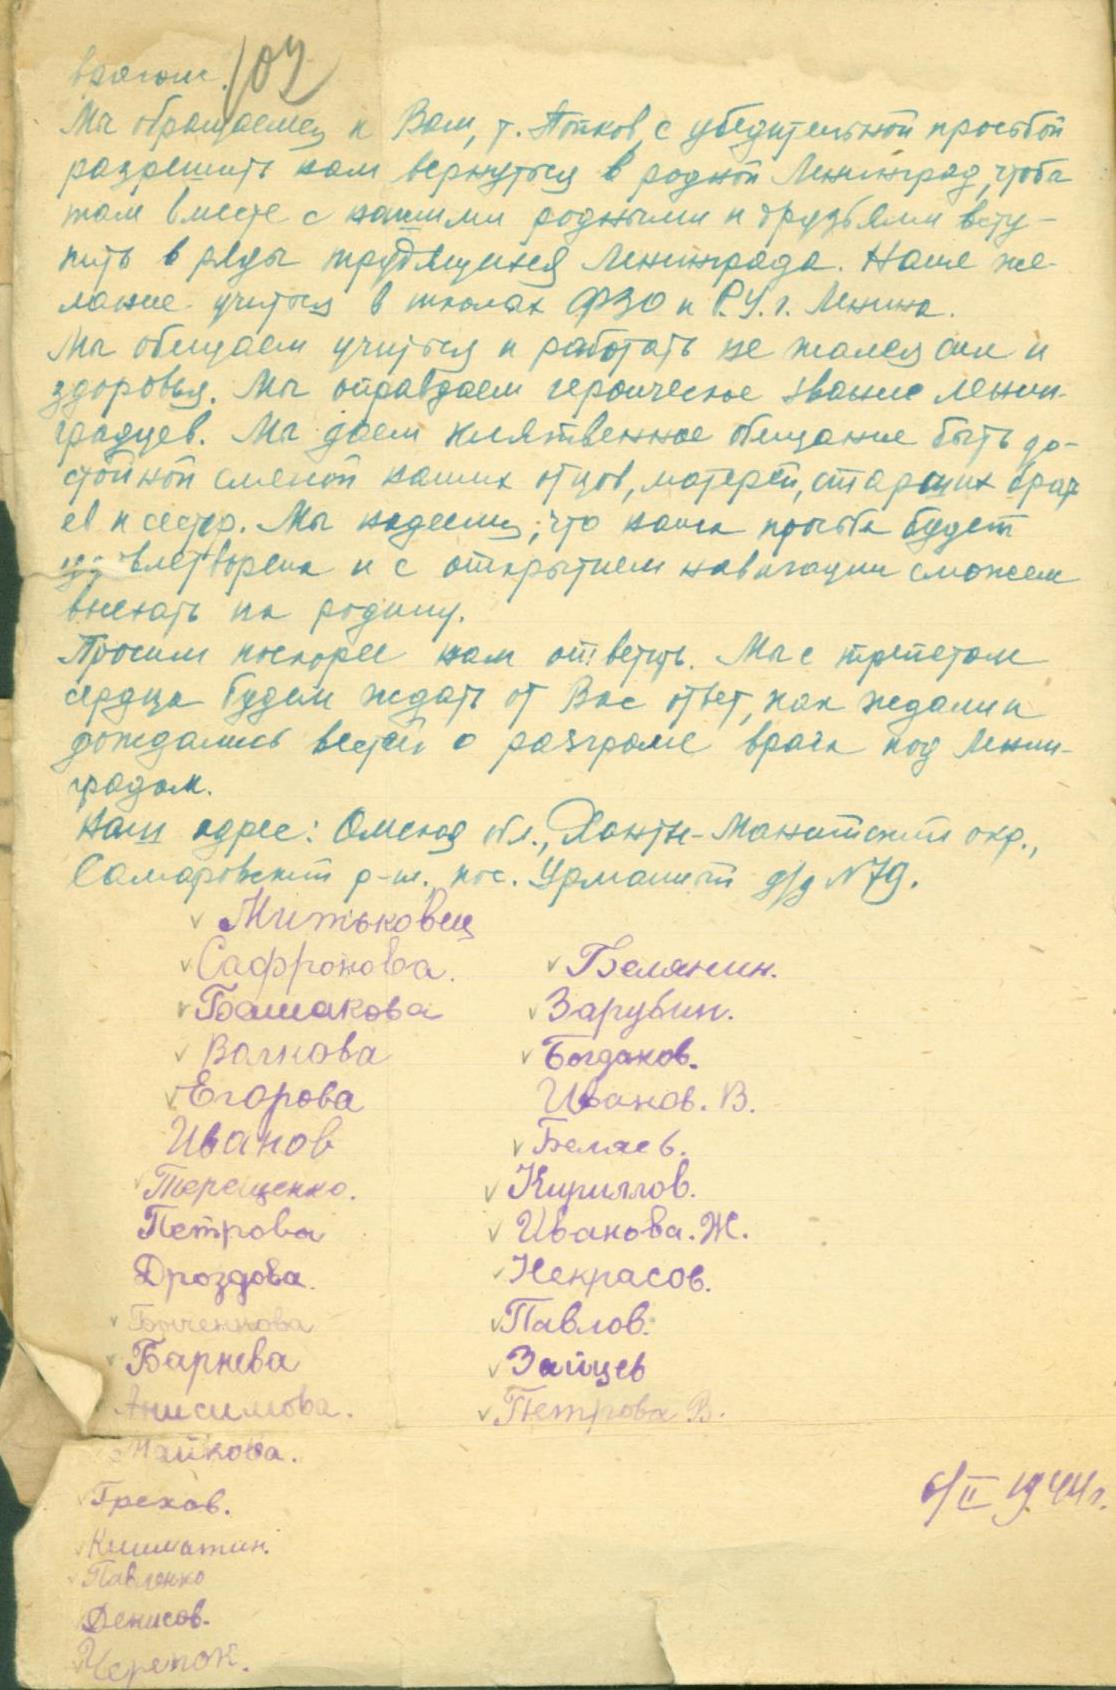 врагом. 102
Мы обращаемся к Вам, т. Попков, с убедительной просьбой
разрешить нам вернуться в родной Ленинград, чтобы
там вместе с нашими родными и друзьями всту-
пить в ряды трудящихся Ленинграда. Наше же-
лание учиться в школах ФЗО и Р.У. г. Ленина.
Мы обещаем учиться и работать не жалея сил и
здоровья. Мы оправдаем героическое звание ленин-
градцев. Мы даем клятвенное обещание быть до-
стойной сменой наших отцов, матерей, старших брат
ев и сестер. Мы надеемся, что наша просьба будет
удовлетворена и с открытием навигации сможем
выехать на родину.
Просим поскорее нам ответить. Мы с трепетом
сердца будем ждать от Вас ответ, как ждали и
дождались вестей о разгроме врага под Ленин-
градом.
Наш адрес: Омская обл., Ханты-Мансийский окр.,
Самаровский р-н, пос. Урманный д/д N 79.
Митьковец
Сафронова. Белянин.
Башмакова Зарубин.
Волкова Богданов.
Егорова Иванов. В.
Иванов Беляев.
Терещенко. Кириллов.
Петрова Иванова. Ж.
Дроздова. Некрасов.
Бонченкова Павлов.
Барнева Зайцев
Анисимова. Петрова В.
Майкова.
Грехов. 6/II 1944 г.
Кишматин.
Павленко
Денисов.
Черепок.